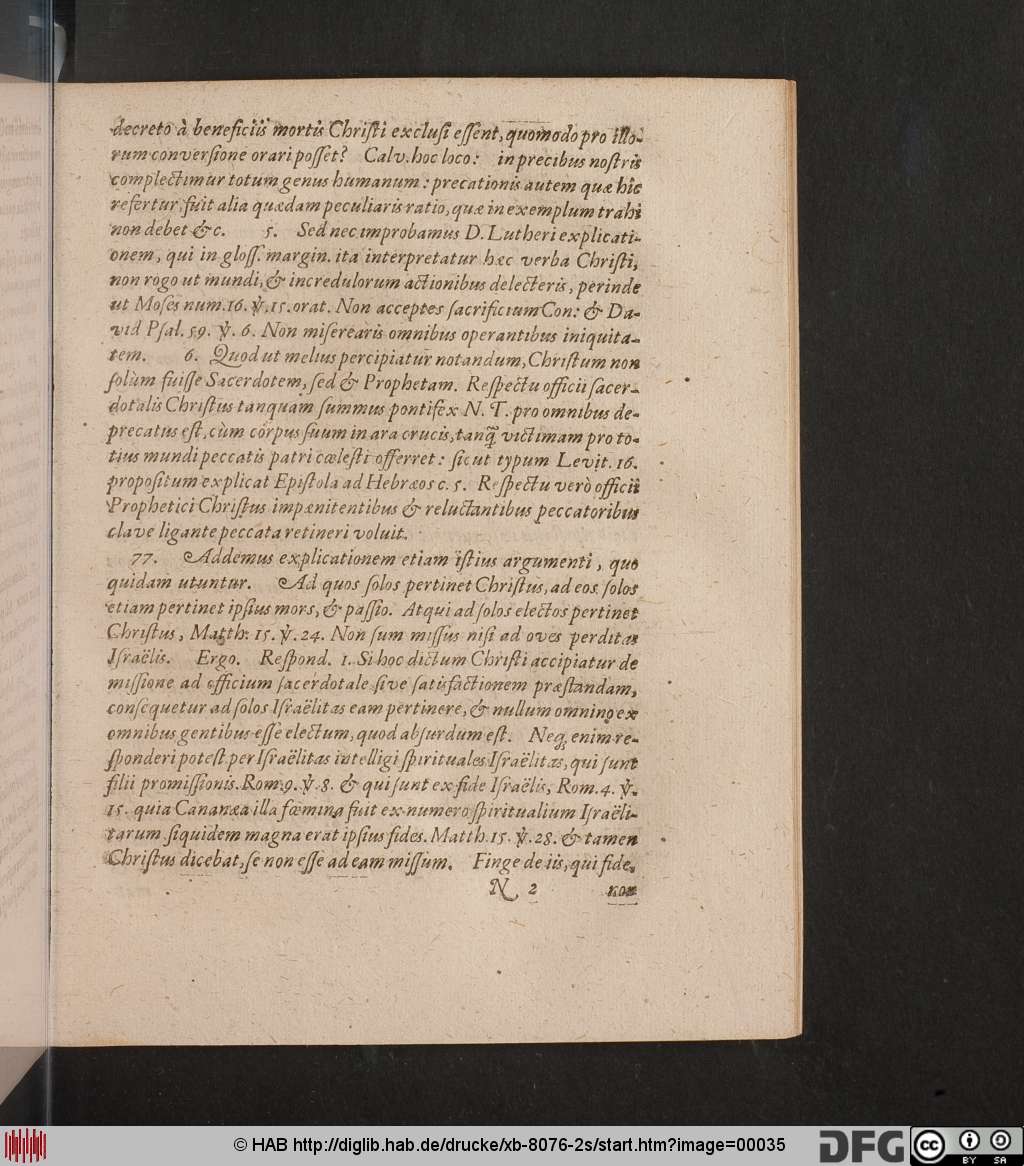 decreto à beneficiis mortis Christi exclusi essent, quomodo pro illo-
rum conversione orari posset? Calv. hoc loco: in precibus nostris
complectimur totum genus humanum: precationis autem quæ hic
refertur, fuit alia quædam peculiaris ratio, quæ in exemplum trahi
non debet &c. 5. Sed nec improbamus D. Lutheri explicati-
onem, qui in gloss. margin. ita interpretatur hæc verba Christi,
non rogo ut mundi, & incredulorum actionibus delecteris, perinde
ut Moses num. 16. ℣. 15. orat. Non acceptes sacrificium Con: & Da-
vid Psal. 59. ℣. 6. Non miserearis omnibus operantibus iniquita-
tem. 6. Quod ut melius percipiatur notandum, Christum non
solùm fuisse Sacerdotem, sed & Prophetam. Respectu officii sacer-
dotalis Christus tanquam summus pontifex N. T. pro omnibus de-
precatus est, cùm corpus suum in ara crucis, tanq̃ victimam pro to-
tius mundi peccatis patri cœlesti offerret: sicut typum Levit. 16.
propositum explicat Epistola ad Hebræos c. 5. Respectu verò officii
Prophetici Christus impænitentibus & reluctantibus peccatoribus
clave ligante peccata retineri voluit.
77. Addemus explicationem etiam istius argumenti, quo
quidam utuntur. Ad quos solos pertinet Christus, ad eos solos
etiam pertinet ipsius mors, & passio. Atqui ad solos electos pertinet
Christus, Matth. 15. ℣. 24. Non sum missus nisi ad oves perditas
Israëlis. Ergo. Respond. 1. Si hoc dictum Christi accipiatur de
missione ad officium sacerdotale sive satisfactionem præstandam,
consequetur ad solos Israëlitas eam pertinere, & nullum omnino ex
omnibus gentibus esse electum, quod absurdum est. Neq; enim re-
sponderi potest per Israëlitas intelligi spirituales Israëlitas, qui sunt
filii promissionis. Rom. 9. ℣. 8. & qui sunt ex fide Israëlis, Rom. 4. ℣.
15. quia Cananæa illa fœmina fuit ex numero spiritualium Israëli-
tarum siquidem magna erat ipsius fides. Matth. 15. ℣. 28. & tamen
Christus dicebat, se non esse ad eam missum. Finge de iis, qui fide,
N 2 non
© HAB http://diglib.hab.de/drucke/xb-8076-2s/start.htm?image=00035
DFG
cc
BY SA